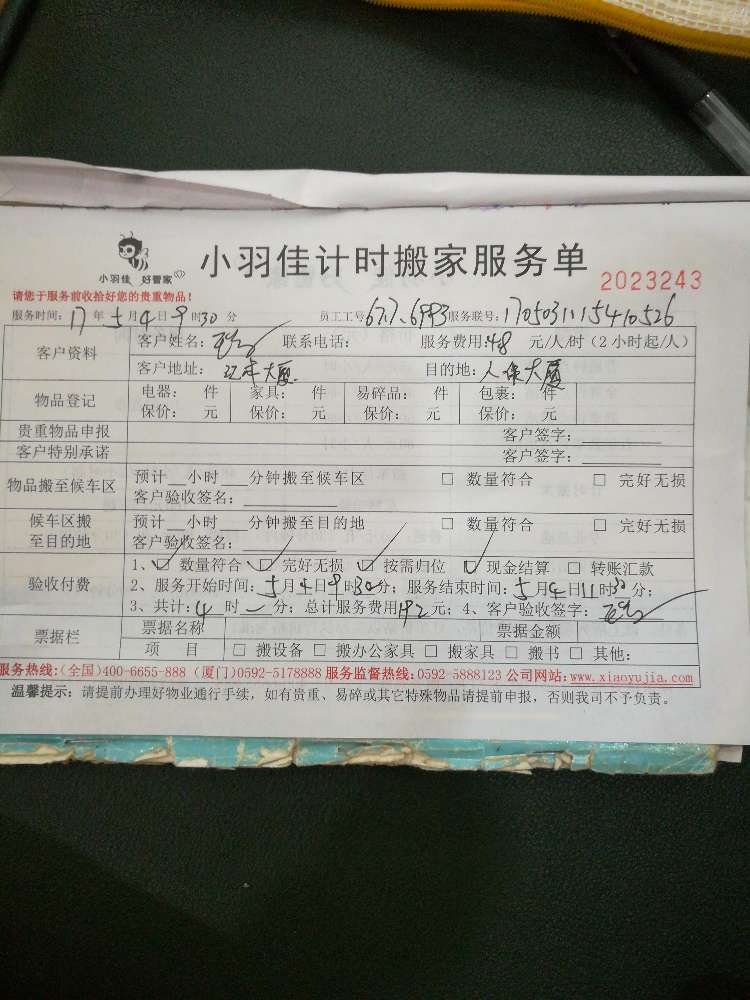 小羽佳 好管家
小羽佳计时搬家服务单
2023243
请您于服务前收拾好您的贵重物品!
服务时间: 17 年 5 月 4 日 9 时 30 分 员工工号 67.7.6993 服务联号: 170503111541 0526
客户资料
客户姓名: 联系电话: 服务费用: 48 元/人/时(2小时起/人)
客户地址: 大厦 目的地: 人保大厦
物品登记
电器: 件 家具: 件 易碎品: 件 包裹: 件
保价: 元 保价: 元 保价: 元 保价: 元
贵重物品申报 客户签字:
客户特别承诺 客户签字:
物品搬至候车区
预计 小时 分钟搬至候车区 □ 数量符合 □ 完好无损
客户验收签名:
候车区搬至目的地
预计 小时 分钟搬至目的地 □ 数量符合 □ 完好无损
客户验收签名:
验收付费
1、☑ 数量符合 ☑ 完好无损 ☑ 按需归位 ☑ 现金结算 □ 转账汇款
2、服务开始时间: 5 月 4 日 9 时 30 分; 服务结束时间: 5 月 4 日 11 时 30 分;
3、共计: 4 时 一 分; 总计服务费用 192 元; 4、客户验收签字:
票据栏
票据名称 票据金额
项 目 □ 搬设备 □ 搬办公家具 □ 搬家具 □ 搬书 □ 其他:
服务热线:(全国)400-6655-888 (厦门)0592-5178888 服务监督热线:0592-5888123 公司网站:www.xiaoyujia.com
温馨提示: 请提前办理好物业通行手续, 如有贵重、易碎或其它特殊物品请提前申报, 否则我司不予负责。